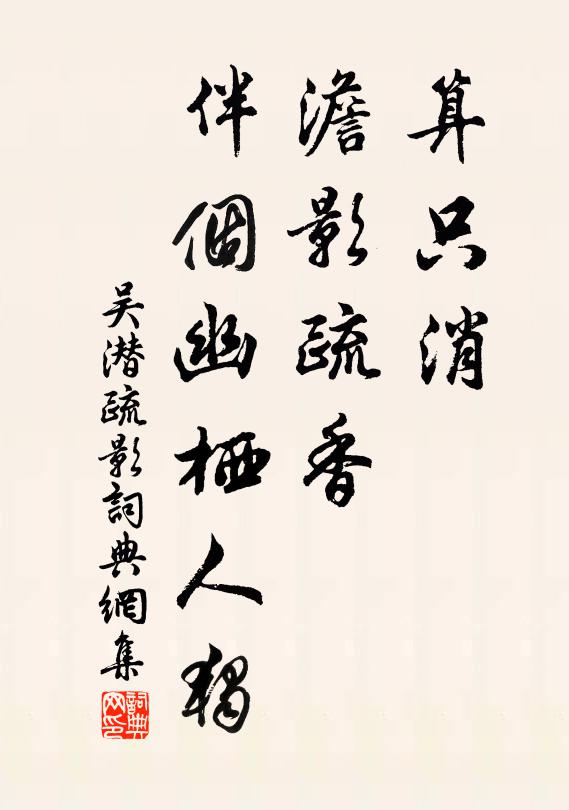 算只消
澹影疏香
伴個幽栖人獨
吴潜疏影詞典網集
詞典網印